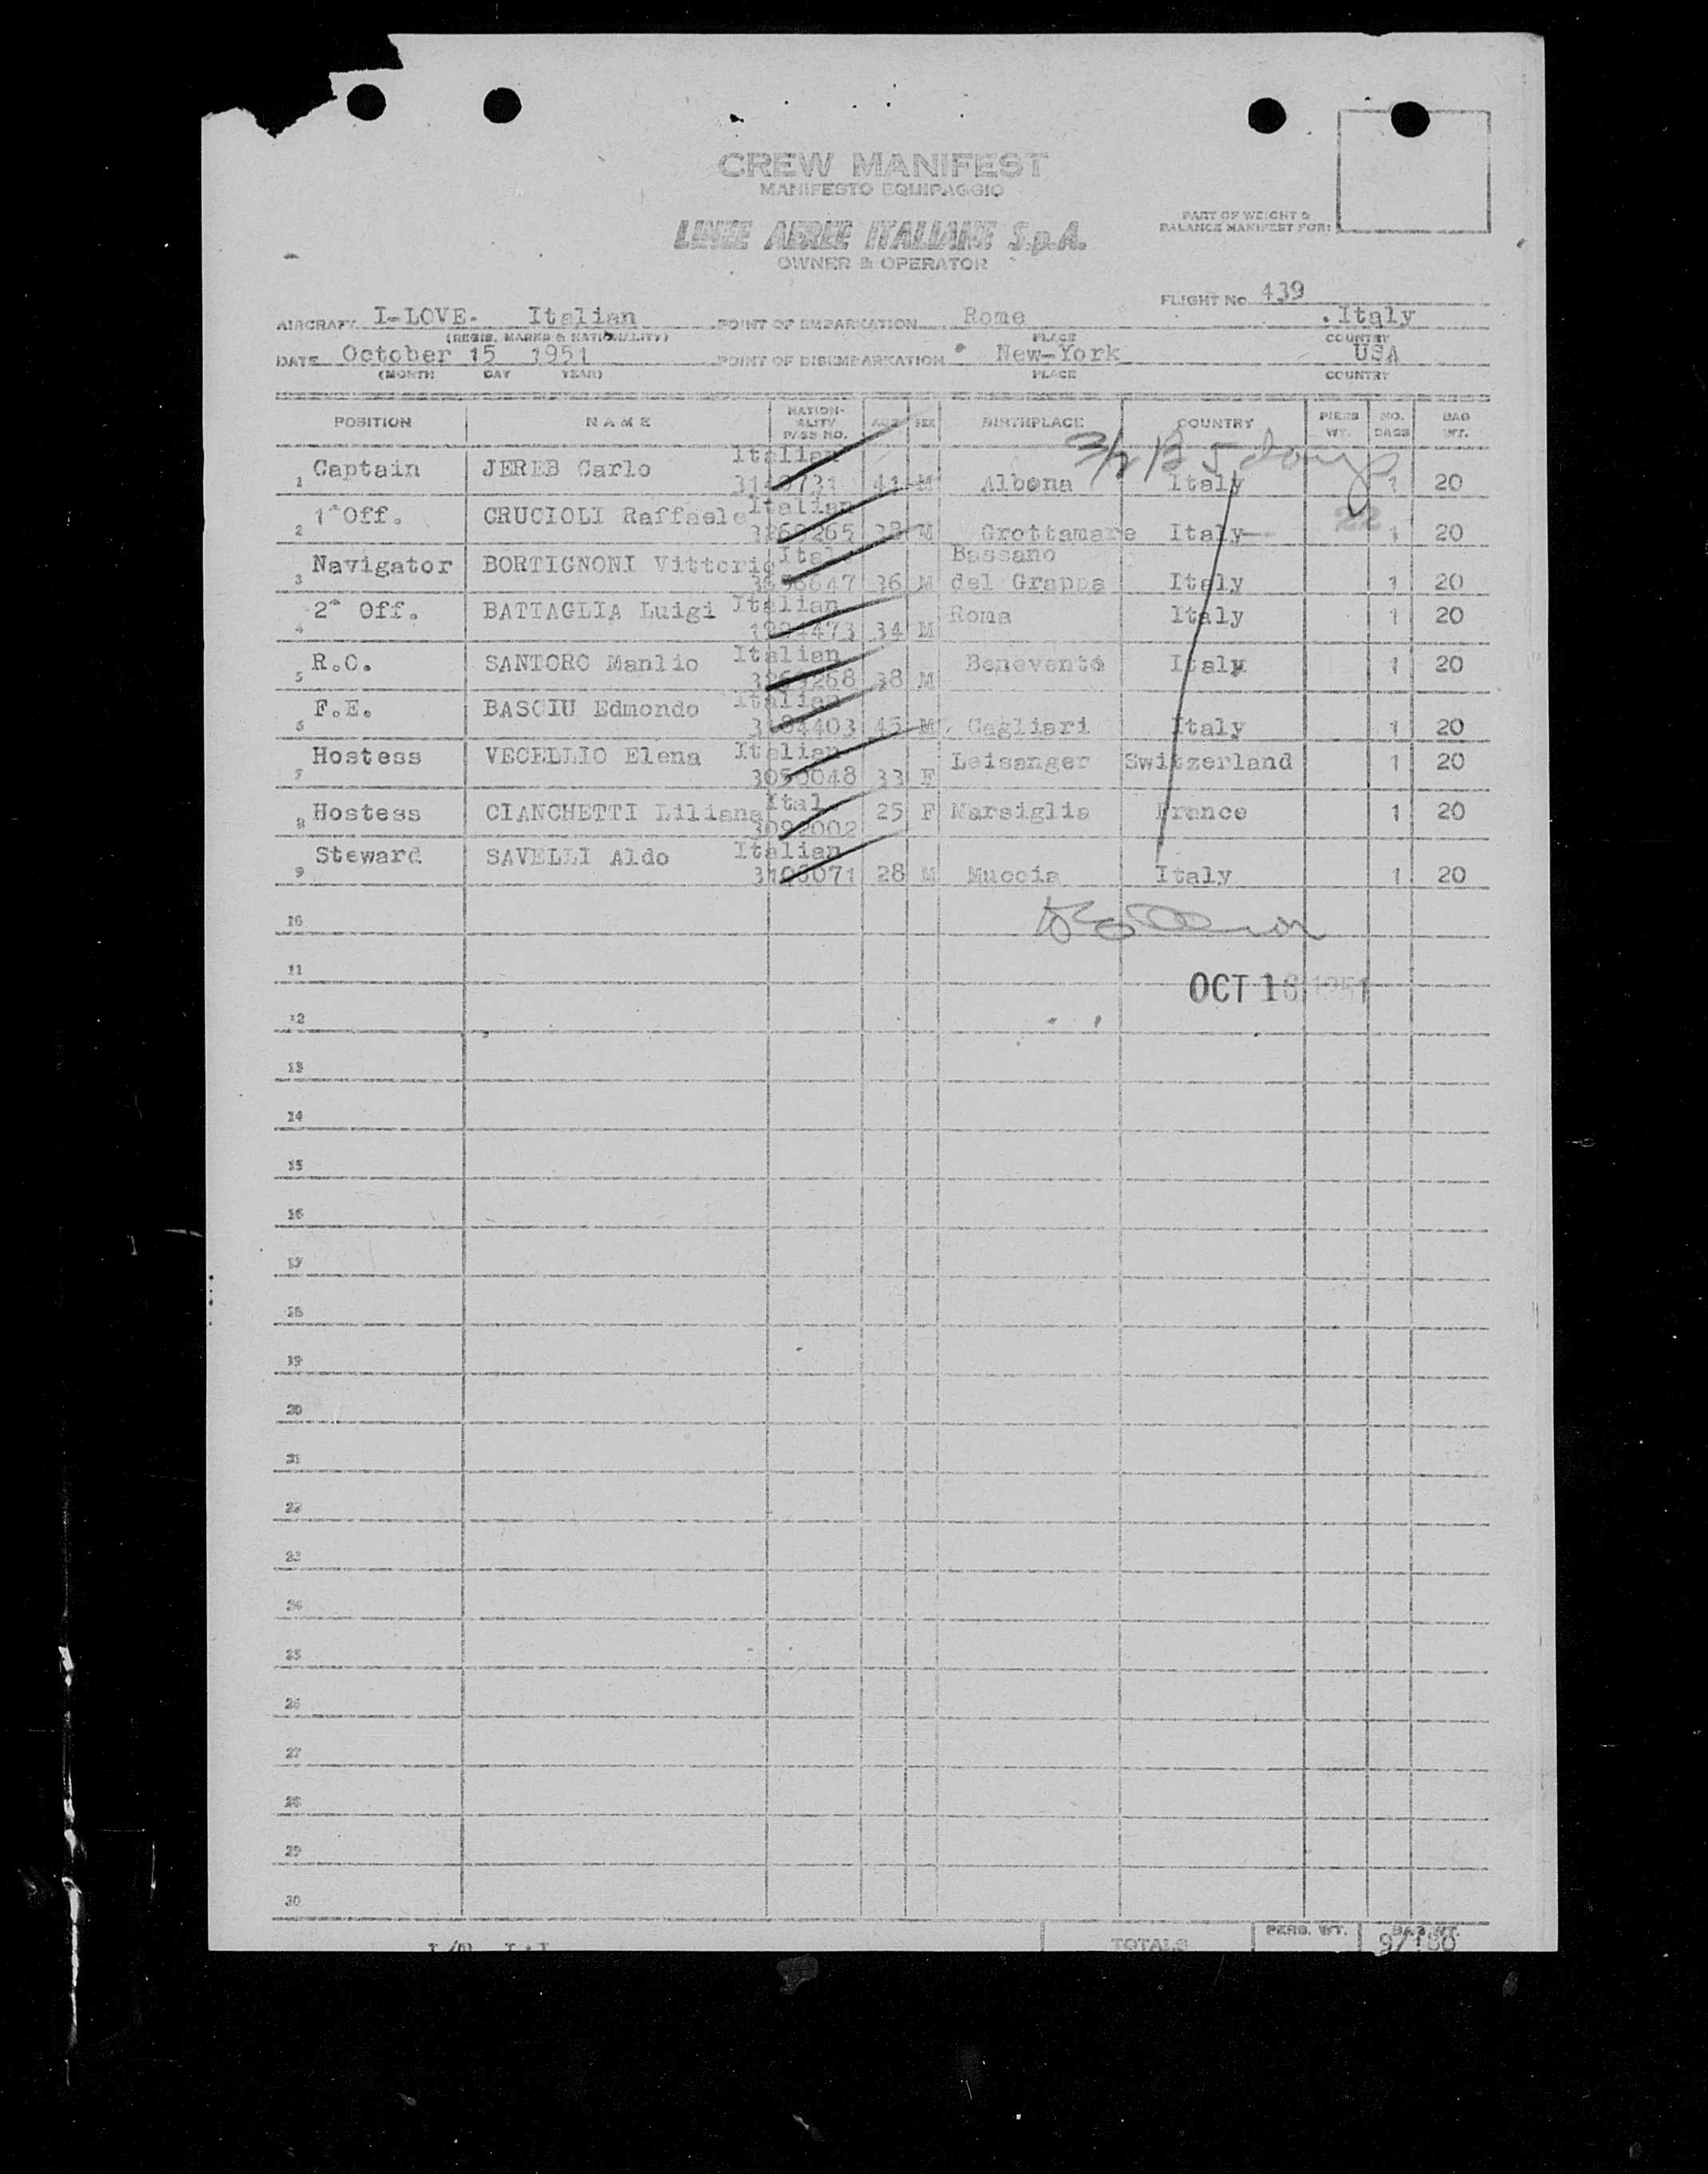 CREW MANIFEST
MANIFESTO EQUIPAGGIO
LINEE AEREE ITALIANE S.p.A.
OWNER & OPERATOR
PART OF WEIGHT &
BALANCE MANIFEST FOR:
FLIGHT No. 439
AIRCRAFT I-LOVE. Italian POINT OF EMBARKATION Rome . Italy
(REGIS. MARKS & NATIONALITY) PLACE COUNTRY
DATE October 15 1951 POINT OF DISEMBARKATION New-York USA
(MONTH DAY YEAR) PLACE COUNTRY
POSITION NAME NATION-ALITY PASS NO. AGE SEX BIRTHPLACE COUNTRY PERS WT. NO. BAGS BAG WT.
1 Captain JEREB Carlo Italian 41 M Albona Italy 1 20
2 1°Off. CRUCIOLI Raffaele Italian 3269265 38 M Grottamare Italy 22 1 20
3 Navigator BORTIGNONI Vittorio Ital. 36 M Bassano del Grappa Italy 1 20
4 2° Off. BATTAGLIA Luigi Italian 34 M Roma Italy 1 20
5 R.O. SANTORO Manlio Italian 3269268 38 M Benevento Italy 1 20
6 F.E. BASCIU Edmondo Italian 45 M Cagliari Italy 1 20
7 Hostess VECELLIO Elena Italian 3050048 33 F Leisanger Switzerland 1 20
8 Hostess CIANCHETTI Liliana Ital. 3092002 25 F Marsiglia France 1 20
9 Steward SAVELLI Aldo Italian 3106071 28 M Muccia Italy 1 20
10
11
OCT 16 1951
12
13
14
15
16
17
18
19
20
21
22
23
24
25
26
27
28
29
30
TOTALS PERS. WT. BAG WT.
9/180